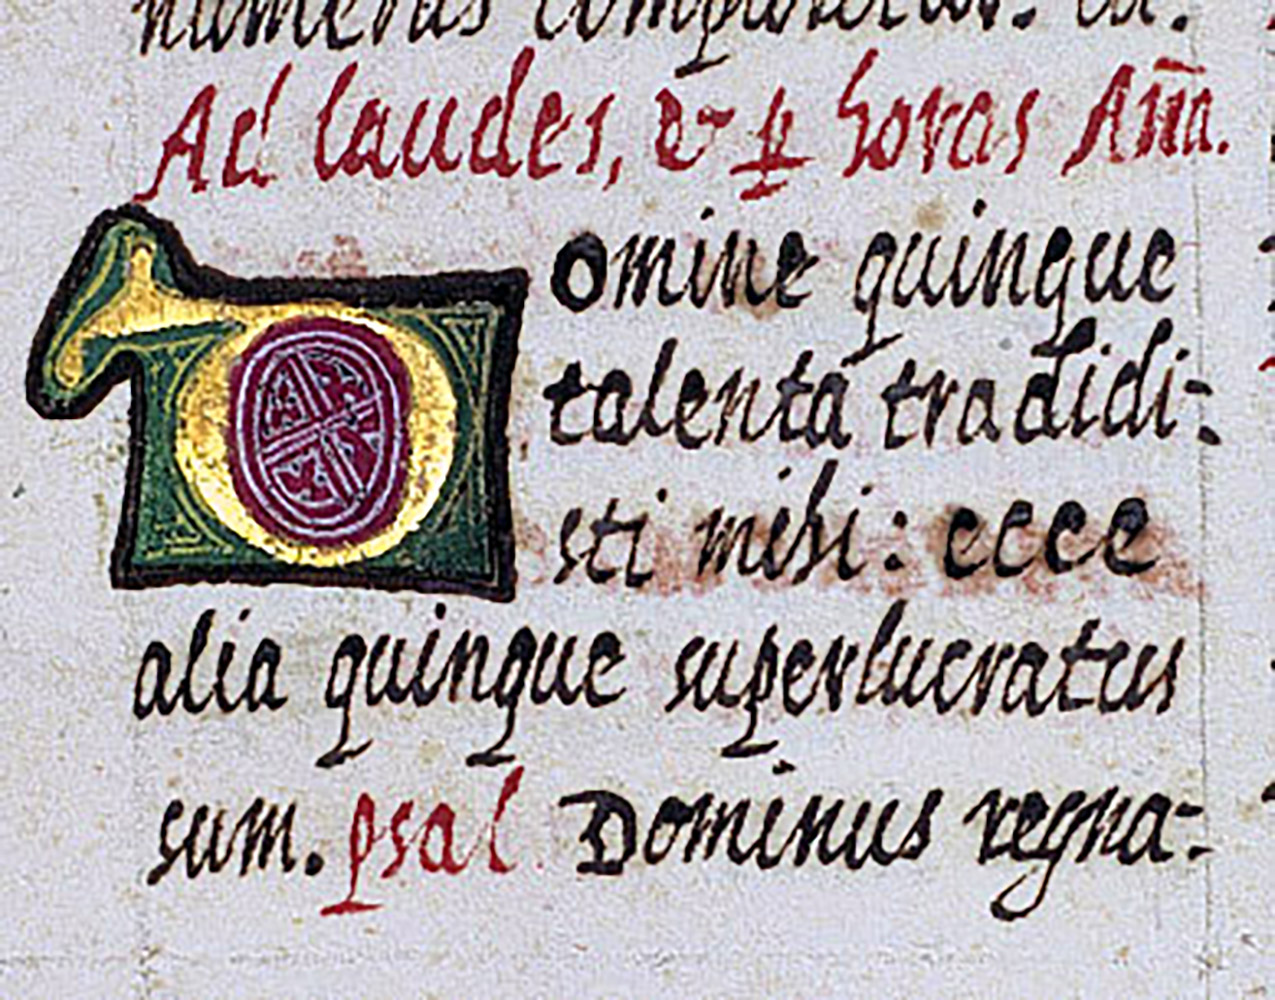 numerus comp
Ad laudes, & p horas Aña.
Domine quinque
talenta tradidi-
sti mihi: ecce
alia quinque superlucratus
sum. psal Dominus regna-